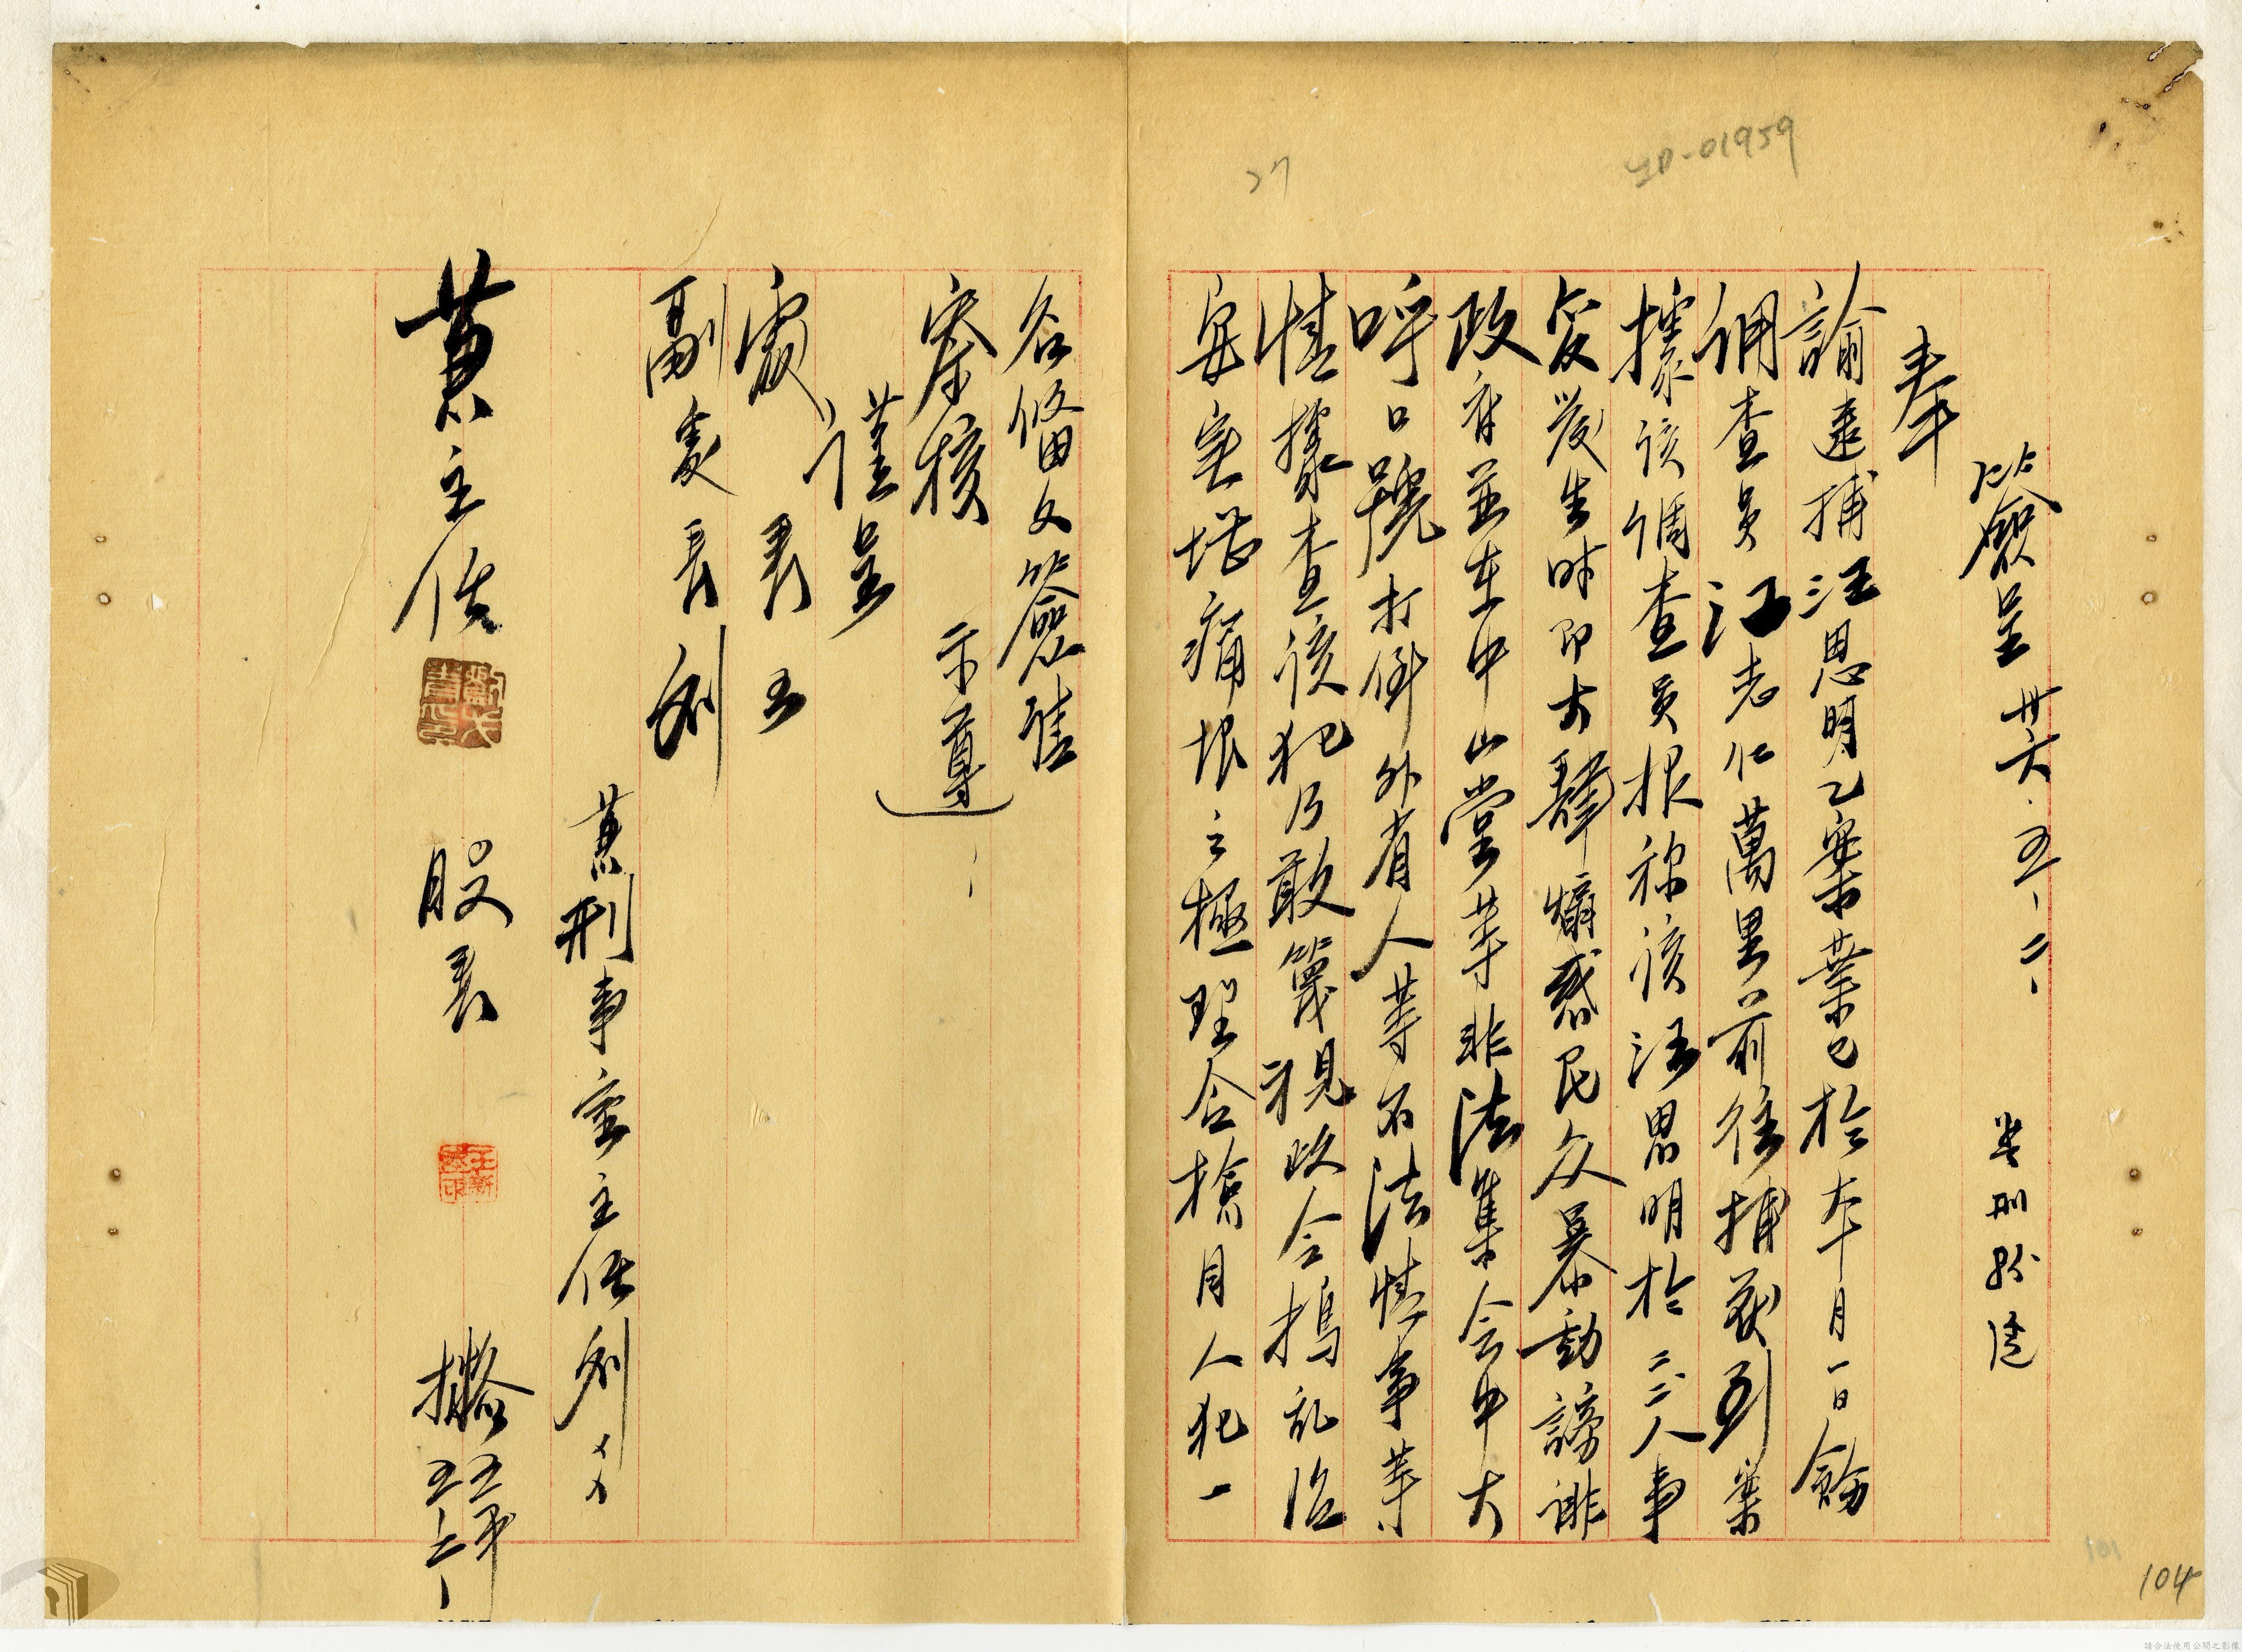 YD-01959
27
簽呈 卅六、五、二、
奉
諭速捕汪思明乙案業已於本月一日飭
調查員江志仁萬里前往捕獲到案
據該調查員報称該汪思明於二二八事
變發生時即大肆煽惑民众暴動誹謗
政府並在中山堂等非法集会中大
呼口號打倒外省人等不法情事等
情據查該犯乃敢篾視政令搗乱治
安実堪痛恨之極理合檢同人犯一
名俻文簽請
察核 示遵
謹呈
處長
副處長 劉
兼刑事室主任劉
黃主任
股長
職
104
101
請合法使用公開之影像